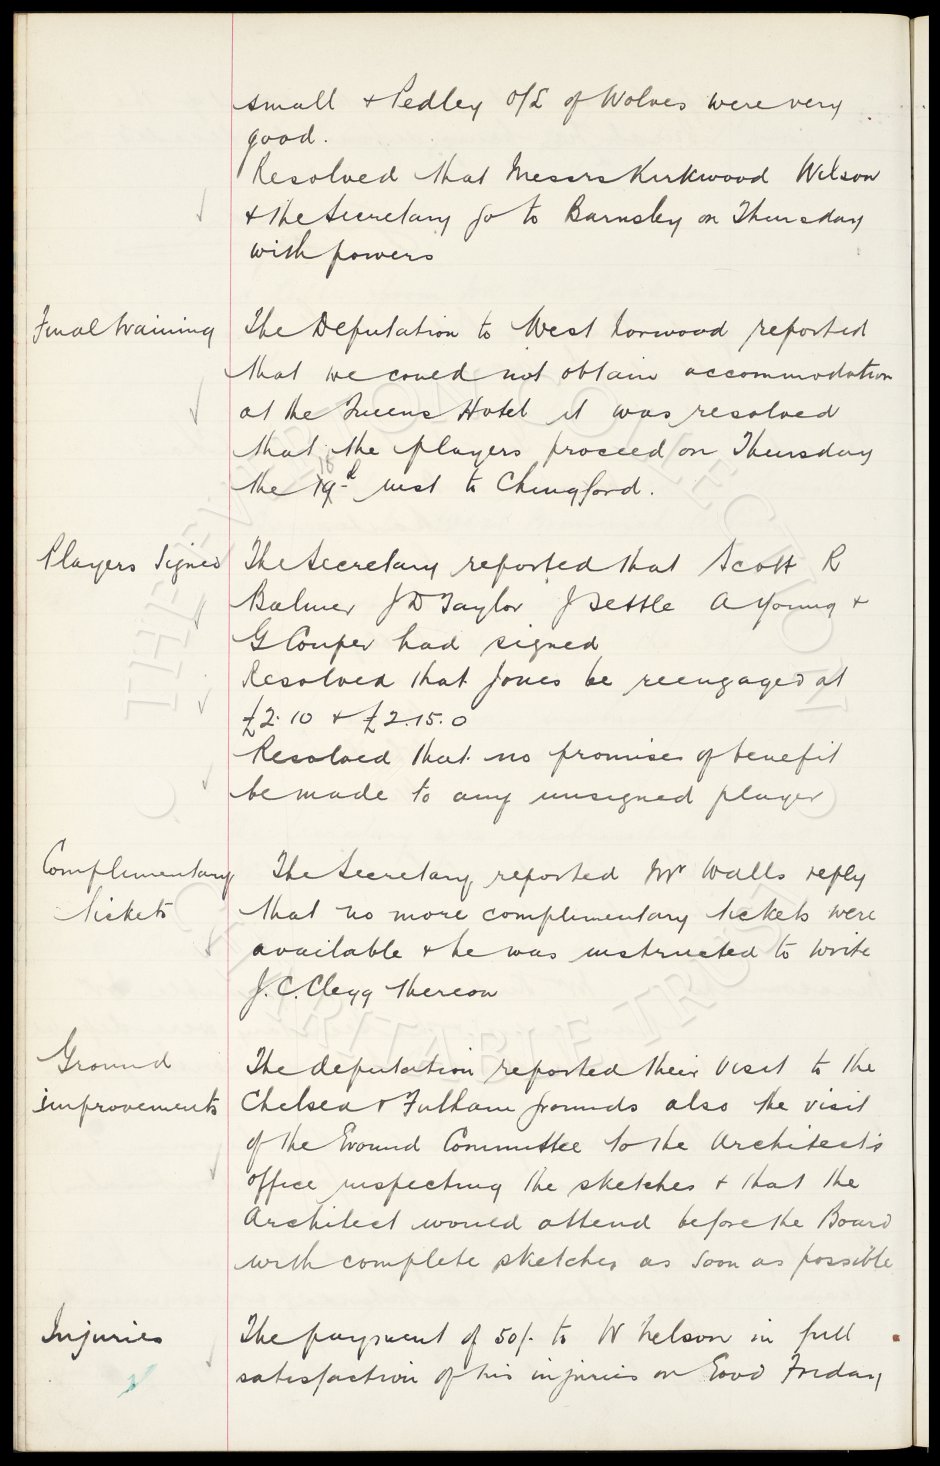 small & Pedley O/L of Wolves were very
good.
Resolved that Messrs Kirkwood Wilson
& the Secretary go to Barnsley on Thursday
with powers
Final training
The Deputation to West Norwood reported
that we could not obtain accommodation
at the Queens Hotel it was resolved
that the players proceed on Thursday
the 18th inst to Chingford.
Players Signed
The Secretary reported that Scott R
Balmer J D Taylor J Settle A Young &
G Couper had signed
Resolved that Jones be reengaged at
£2.10 & £2.15.0
Resolved that no promise of benefit
be made to any unsigned player
Complimentary
tickets
The Secretary reported Mr Walls reply
that no more complimentary tickets were
available & he was instructed to write
J.C. Clegg thereon
Ground
improvements
The deputation reported their visit to the
Chelsea & Fulham grounds also the visit
of the Ground Committee to the Architect's
office inspecting the sketches & that the
Architect would attend before the Board
with complete sketches as soon as possible
Injuries
The payment of 50/- to W Nelson in full
satisfaction of his injuries on Good Friday
THE EVERTON COLLECTION
CHARITABLE TRUST